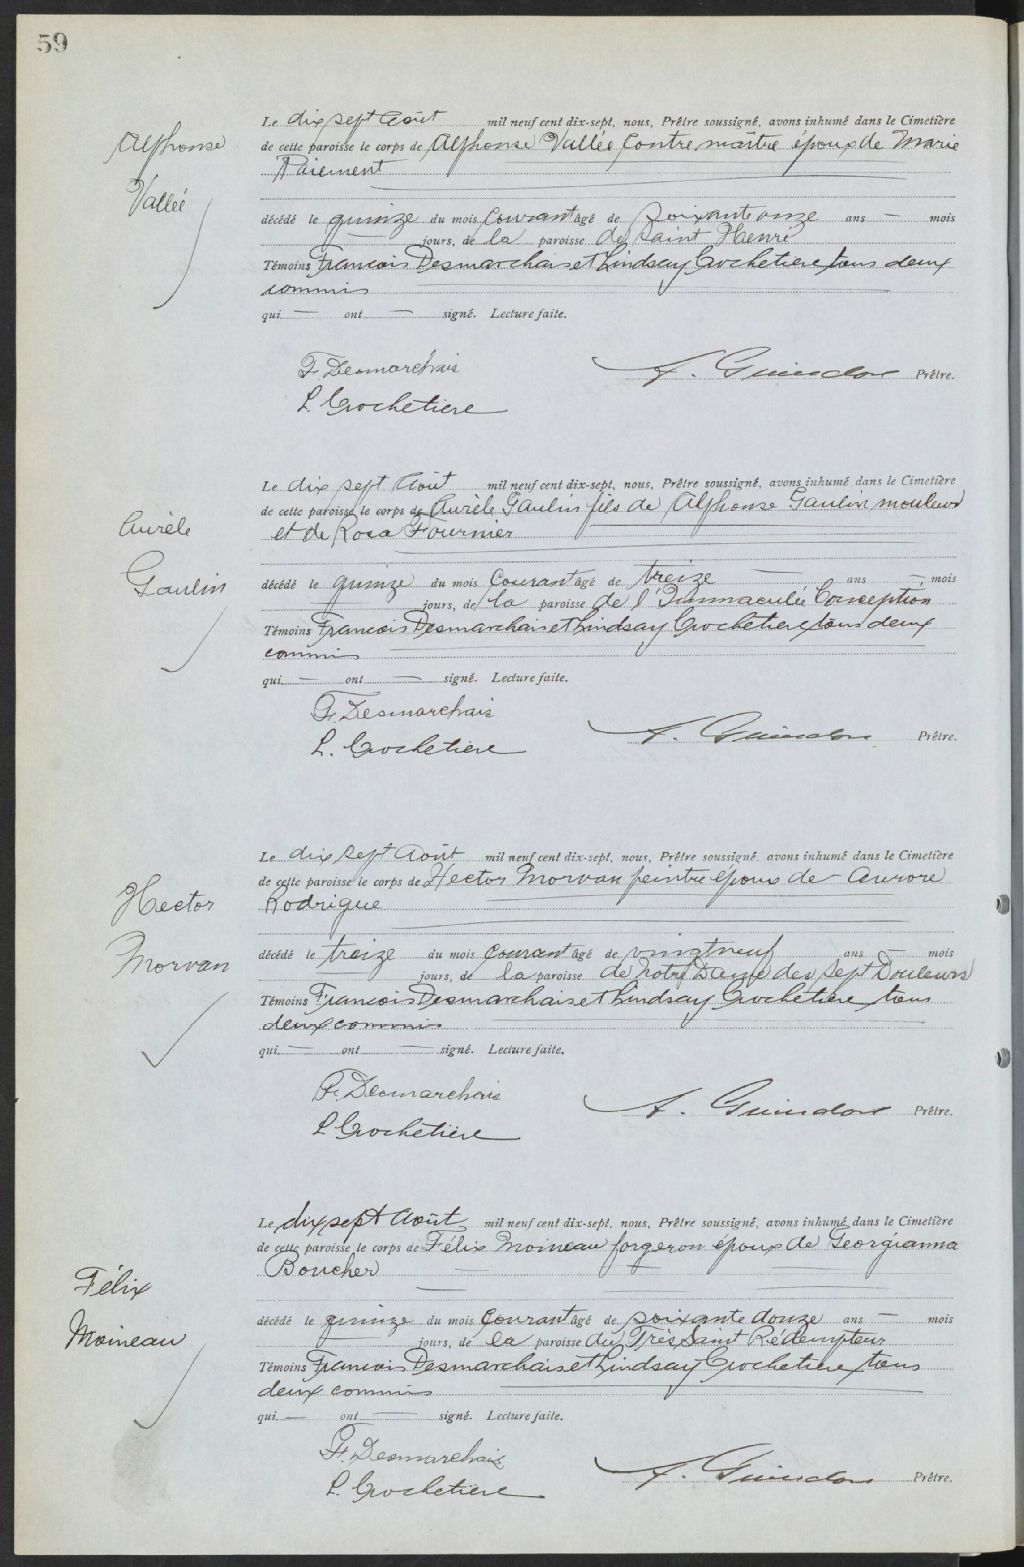 59
Alphonse
Vallée
Le dix sept Août mil neuf cent dix-sept, nous, Prêtre soussigné, avons inhumé dans le Cimetière
de cette paroisse le corps de Alphonse Vallée Contre maître époux de Marie
Paiement
décédé le quinze du mois Courant âgé de Soixante onze ans — mois
jours, de la paroisse de Saint Henri
Témoins Francois Desmarchais et Lindsay Crochetiere tous deux
commis
qui — ont — signé. Lecture faite.
F. Desmarchais
L. Crochetiere
A. Guindon Prêtre.
Aurèle
Gaulin
Le dix sept Août mil neuf cent dix-sept, nous, Prêtre soussigné, avons inhumé dans le Cimetière
de cette paroisse le corps de Aurèle Gaulin fils de Alphonse Gaulin mouleur
et de Rosa Fournier
décédé le quinze du mois Courant âgé de treize — ans — mois
jours, de la paroisse de l'Immaculée Conception
Témoins Francois Desmarchais et Lindsay Crochetiere tous deux
commis
qui — ont — signé. Lecture faite.
F. Desmarchais
L. Crochetiere
A. Guindon Prêtre.
Hector
Morvan
Le dix sept Août mil neuf cent dix-sept, nous, Prêtre soussigné, avons inhumé dans le Cimetière
de cette paroisse le corps de Hector Morvan peintre époux de Aurore
Rodrigue
décédé le treize du mois Courant âgé de vingt neuf ans — mois
jours, de la paroisse de Notre Dame des Sept Douleurs
Témoins Francois Desmarchais et Lindsay Crochetiere tous
deux commis
qui — ont — signé. Lecture faite.
F. Desmarchais
L Crochetiere
A. Guindon Prêtre.
Félix
Moineau
Le dix sept Août mil neuf cent dix-sept, nous, Prêtre soussigné, avons inhumé dans le Cimetière
de cette paroisse le corps de Félix Moineau forgeron époux de Georgianna
Boucher
décédé le quinze du mois Courant âgé de soixante douze ans — mois
jours, de la paroisse du Très Saint Rédempteur
Témoins Francois Desmarchais et Lindsay Crochetiere tous
deux commis
qui — ont — signé. Lecture faite.
F. Desmarchais
L. Crochetiere
A. Guindon Prêtre.